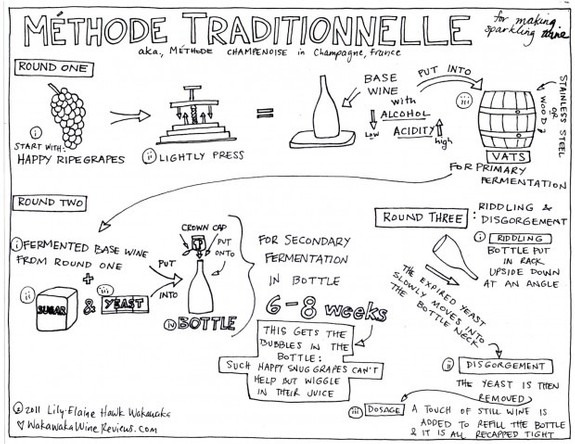 MÉTHODE TRADITIONNELLE
for making
sparkling wine
aka., MÉTHODE CHAMPENOISE in Champagne, France
ROUND ONE
i
START WITH:
HAPPY RIPE GRAPES
ii LIGHTLY PRESS
=
BASE
WINE
with
↓ ALCOHOL
low
ACIDITY ↑
high
PUT INTO
iii
STAINLESS STEEL
OR
WOOD?
VATS
FOR PRIMARY
FERMENTATION
ROUND TWO
i FERMENTED BASE WINE
FROM ROUND ONE
+
ii SUGAR & iii YEAST
PUT
INTO
CROWN CAP
PUT
ONTO
iv BOTTLE
FOR SECONDARY
FERMENTATION
IN BOTTLE
6-8 weeks
THIS GETS THE
BUBBLES IN THE
BOTTLE:
SUCH HAPPY SNUG GRAPES CAN'T
HELP BUT WIGGLE
IN THEIR JUICE
ROUND THREE: RIDDLING &
DISGORGEMENT
i RIDDLING
BOTTLE PUT
IN RACK
UPSIDE DOWN
AT AN ANGLE
THE EXPIRED YEAST
SLOWLY MOVES INTO
THE BOTTLE NECK
ii DISGORGEMENT
THE YEAST IS THEN
REMOVED
iii DOSAGE A TOUCH OF STILL WINE IS
ADDED TO REFILL THE BOTTLE
& IT IS ALL RECAPPED TIGHT
© 2011 Lily-Elaine Hawk Wakawaka
♡ WakawakaWineReviews.com